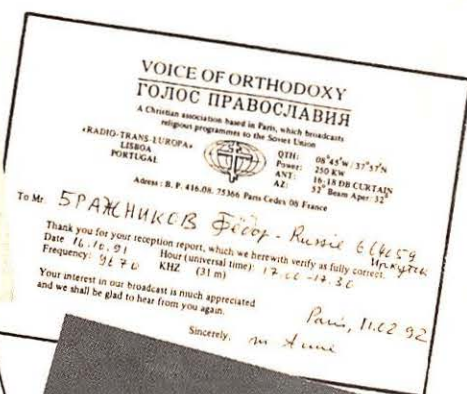 VOICE OF ORTHODOXY
ГОЛОС ПРАВОСЛАВИЯ
A Christian association based in Paris, which broadcasts
religious programmes to the Soviet Union
«RADIO-TRANS-EUROPA»
LISBOA
PORTUGAL
QTH: 08°45'W / 37°57'N
Power: 250 KW
ANT: 16-18 DB CURTAIN
AZ: 52° Beam Aper: 32°
Adress: B. P. 416.08. 75366 Paris Cedex 08 France
To Mr. БРАЖНИКОВ Фёдор - Russie 664059
Иркутск
Thank you for your reception report, which we herewith verify as fully correct.
Date 16.10.91 Hour (universal time): 17.00-17.30
Frequency: 9670 KHZ (31 m)
Your interest in our broadcast is much appreciated
and we shall be glad to hear from you again.
Paris, 11.02 92
Sincerely,